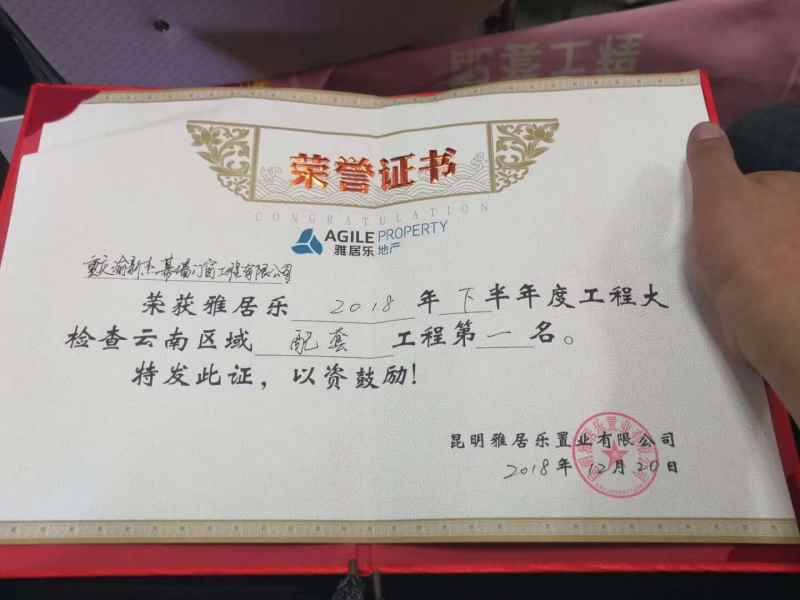 荣誉证书
CONGRATULATION
AGILE PROPERTY
雅居乐 地产
重庆渝新杰幕墙门窗工程有限公司
荣获雅居乐 2018 年 下 半年度工程大
检查云南区域 配套 工程第 一 名。
特发此证，以资鼓励！
昆明雅居乐置业有限公司
2018年 12月 20日
昆明雅居乐置业有限公司